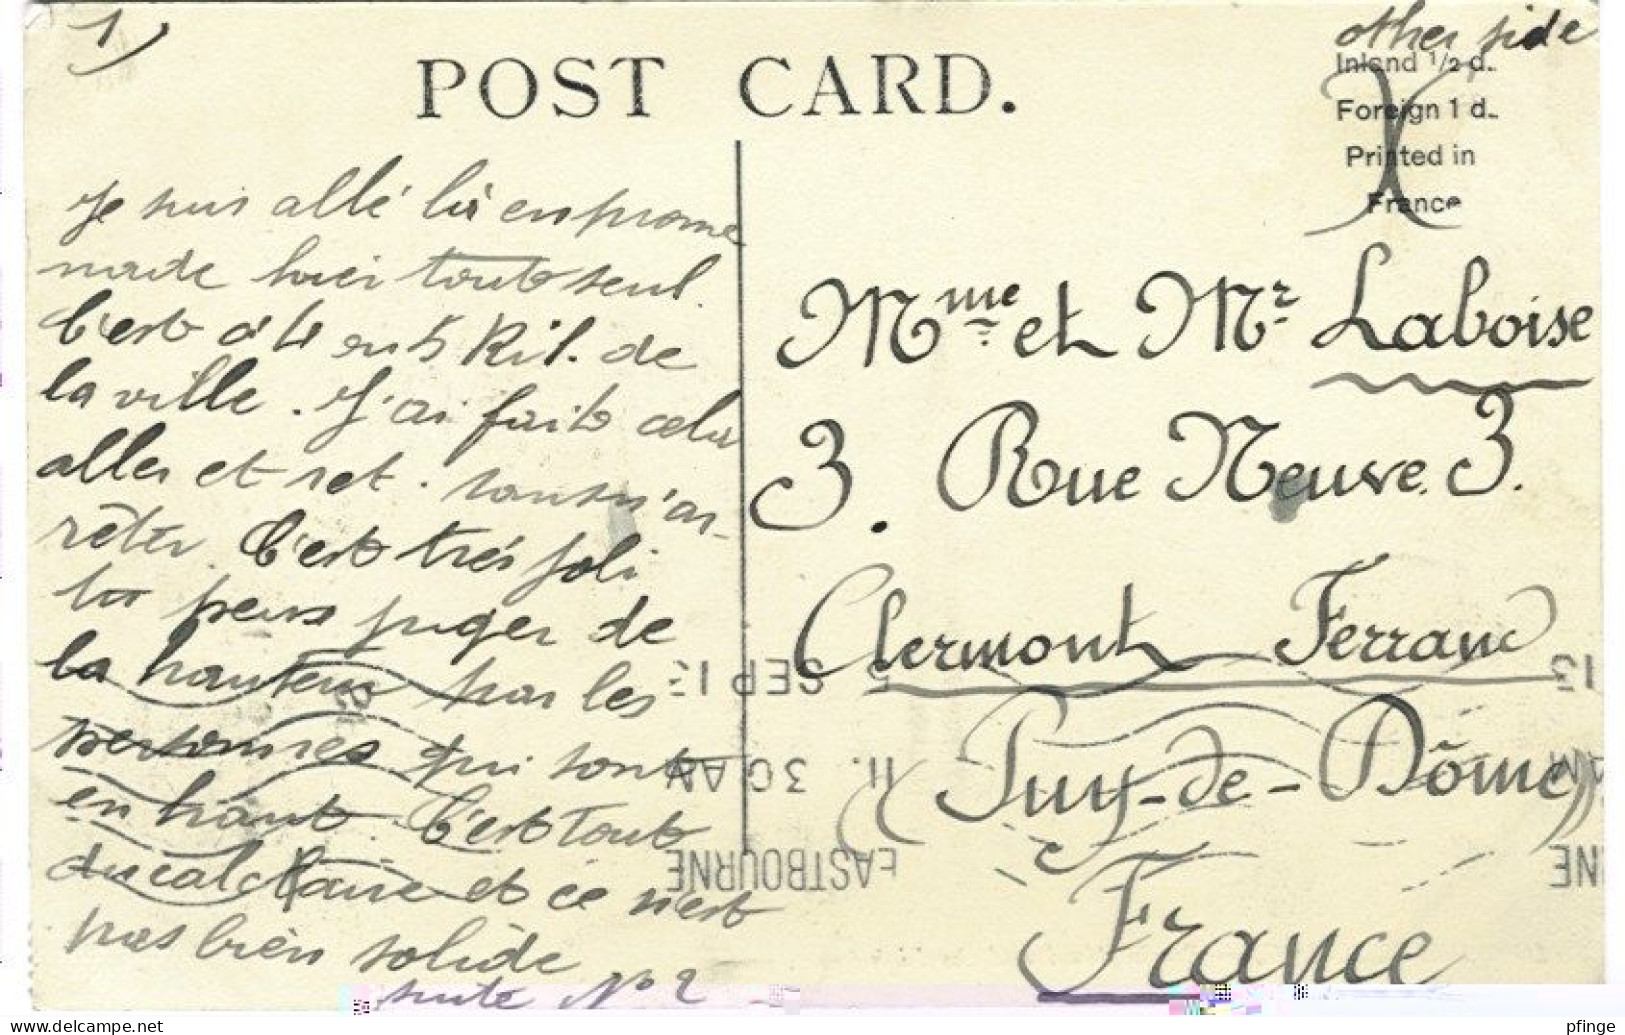 1)
other side
POST CARD.
Inland 1/2 d.
Foreign 1 d.
Printed in
France
Je suis allé là en prome
nade hier tout seul.
C'est à 4 ou 5 Kil. de
la ville. J'ai fait cela
aller et ret. sans m'ar-
rêter. C'est très joli
tu peux juger de
la hauteur par les
personnes qui sont
en haut. C'est tout
du calcaire et ce n'est
pas bien solide
suite No 2
Mme et Mr Laboise
3. Rue Neuve. 3.
Clermont Ferrand
(Puy-de-Dôme)
France
EASTBOURNE
11. 30 AM
5 SEP 13
13
AM
NE
www.delcampe.net
pfinge